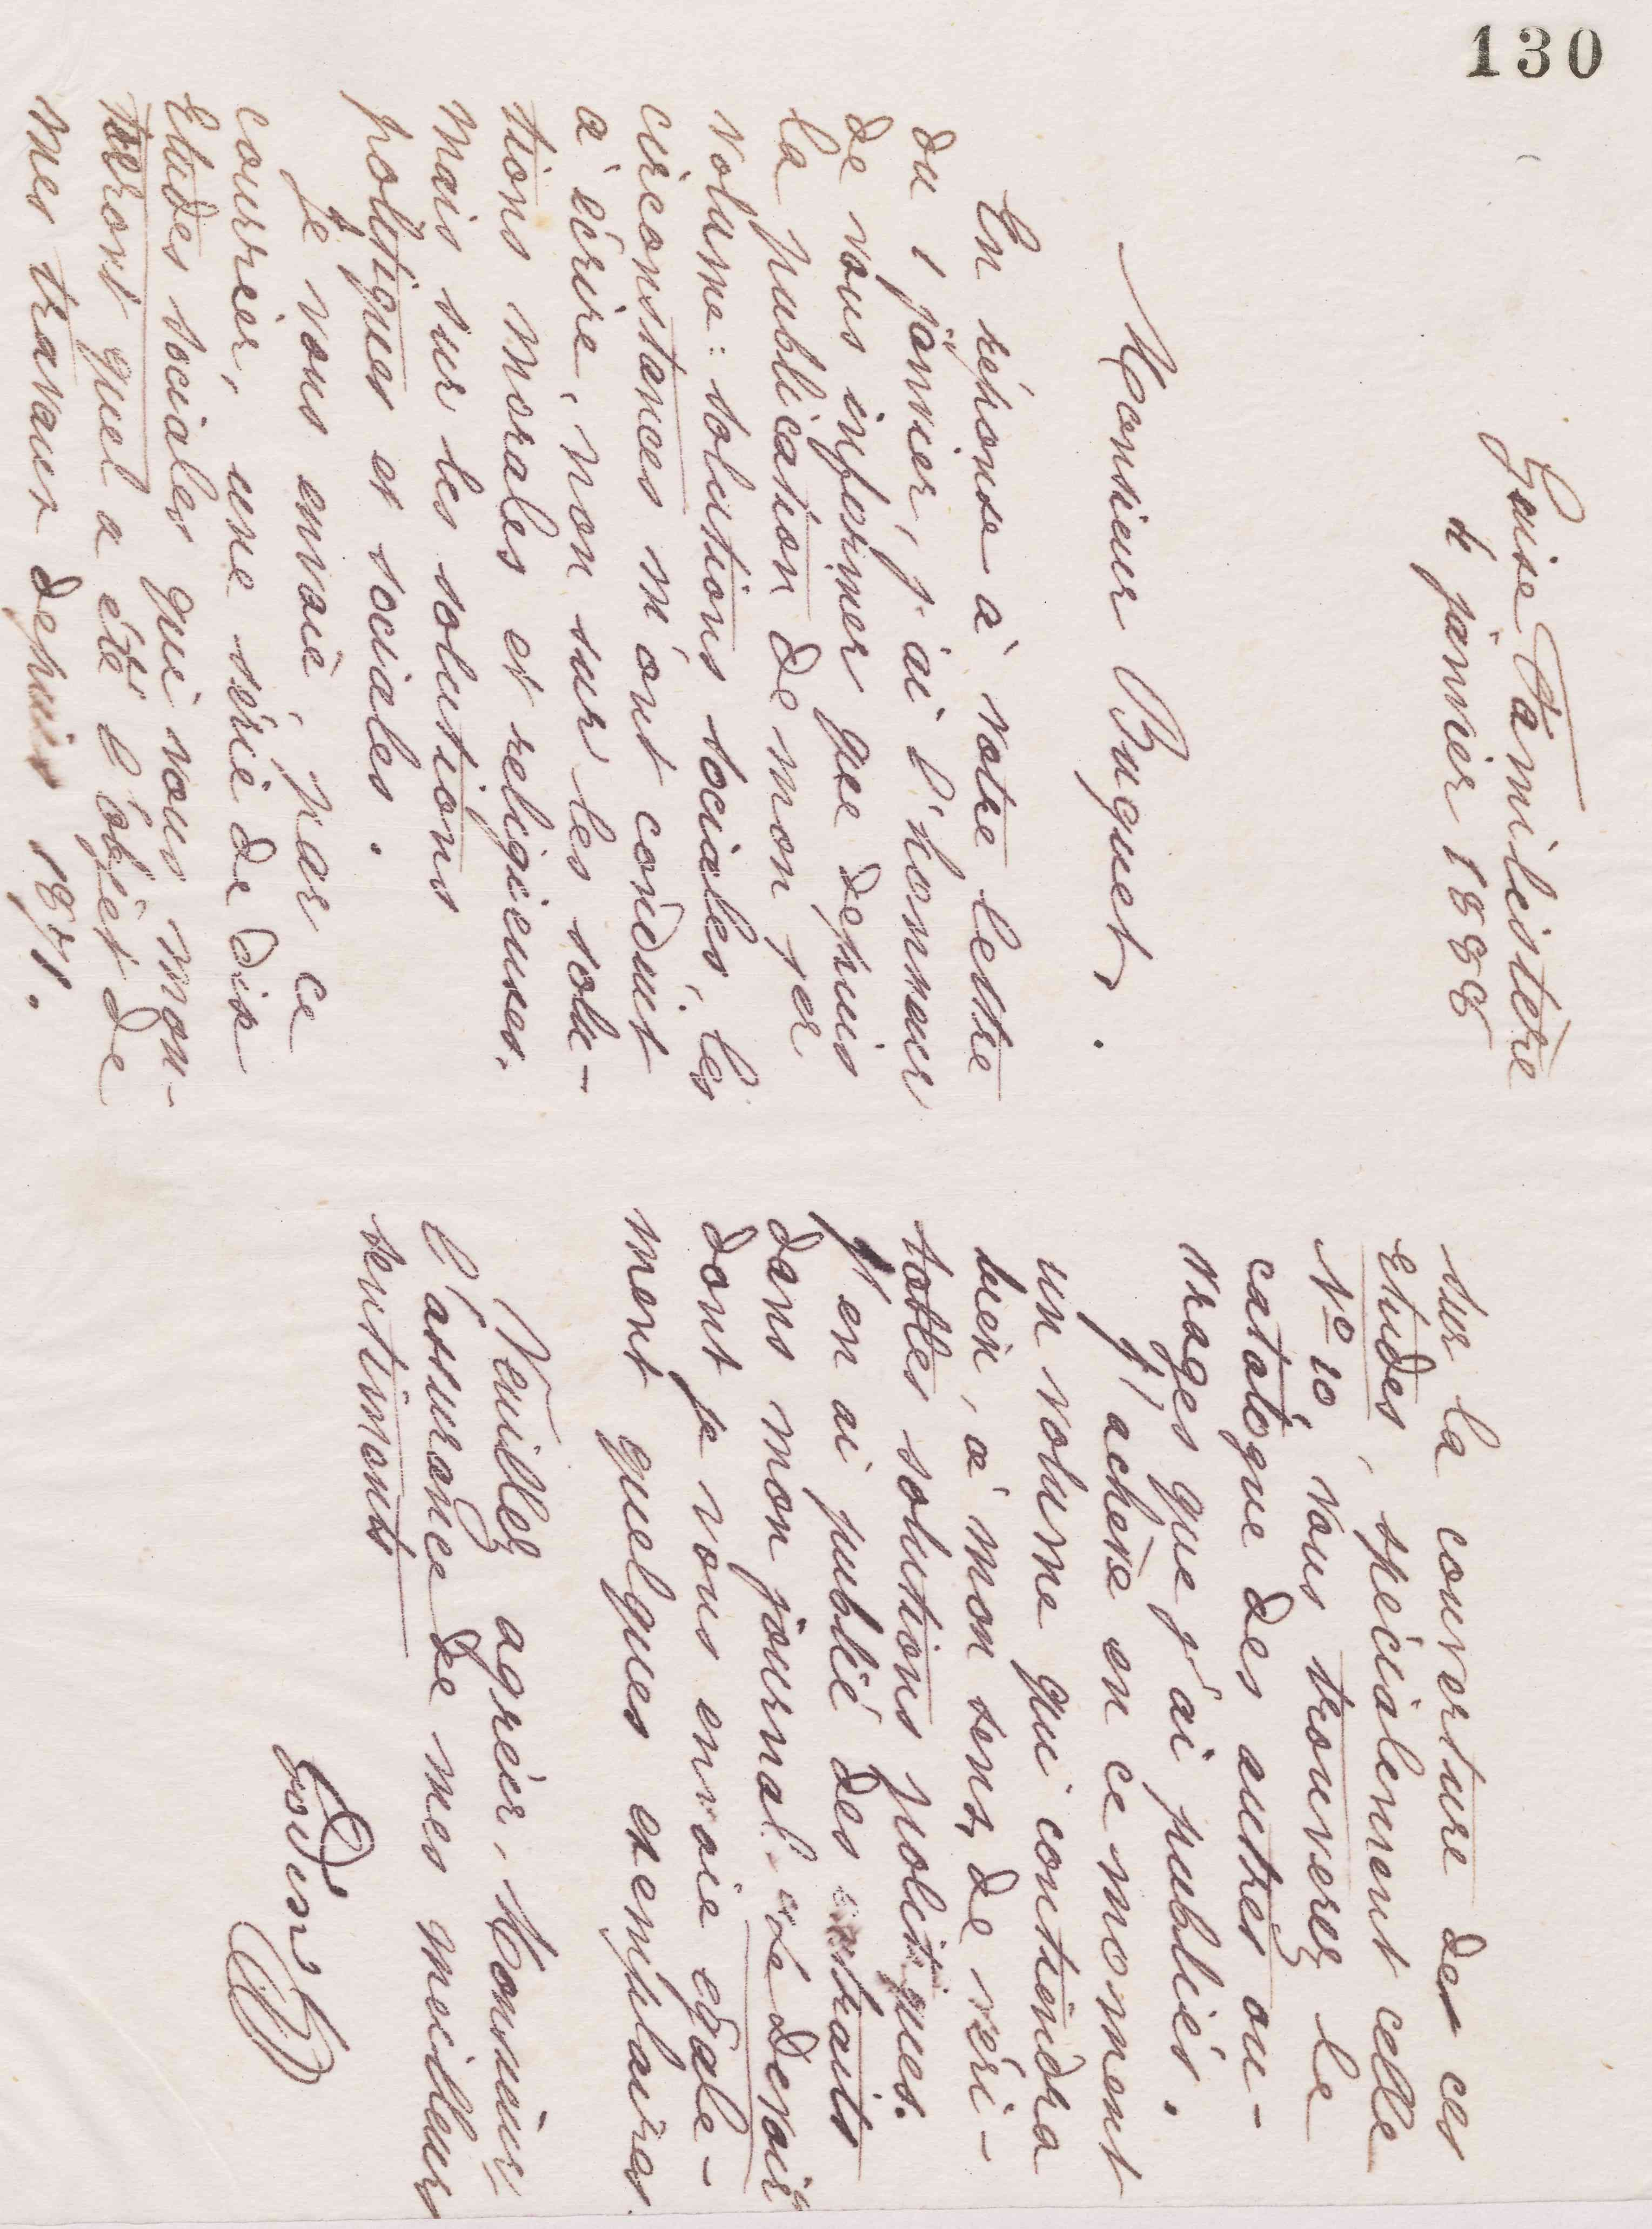 130
Guise Familistère
4 janvier 1888
Monsieur Buguet,
En réponse à votre lettre
du 1 janvier, j'ai l'honneur
de vous informer que depuis
la publication de mon 1er
volume : solutions sociales, les
circonstances m'ont conduit
à écrire, non sur les solu-
tions morales et religieuses.
mais sur les solutions
politiques et sociales.
Je vous envoie, par ce
courrier, une série de dix
Etudes sociales qui vous mon-
treront quel a été l'objet de
mes travaux depuis 1871.
sur la couverture des ces
Etudes, spécialement celle
No 10, vous trouverez le
catalogue des autres ou-
vrages que j'ai publiés.
J'achève en ce moment
un volume qui contiendra
bien, à mon sens, de véri-
tables solutions politiques.
J'en ai publié des extraits
dans mon journal. Le devoir
dont je vous envoie égale-
ment quelques exemplaires.
Veuillez agréer, Monsieur,
l'assurance de mes meilleurs
sentiments
Godin